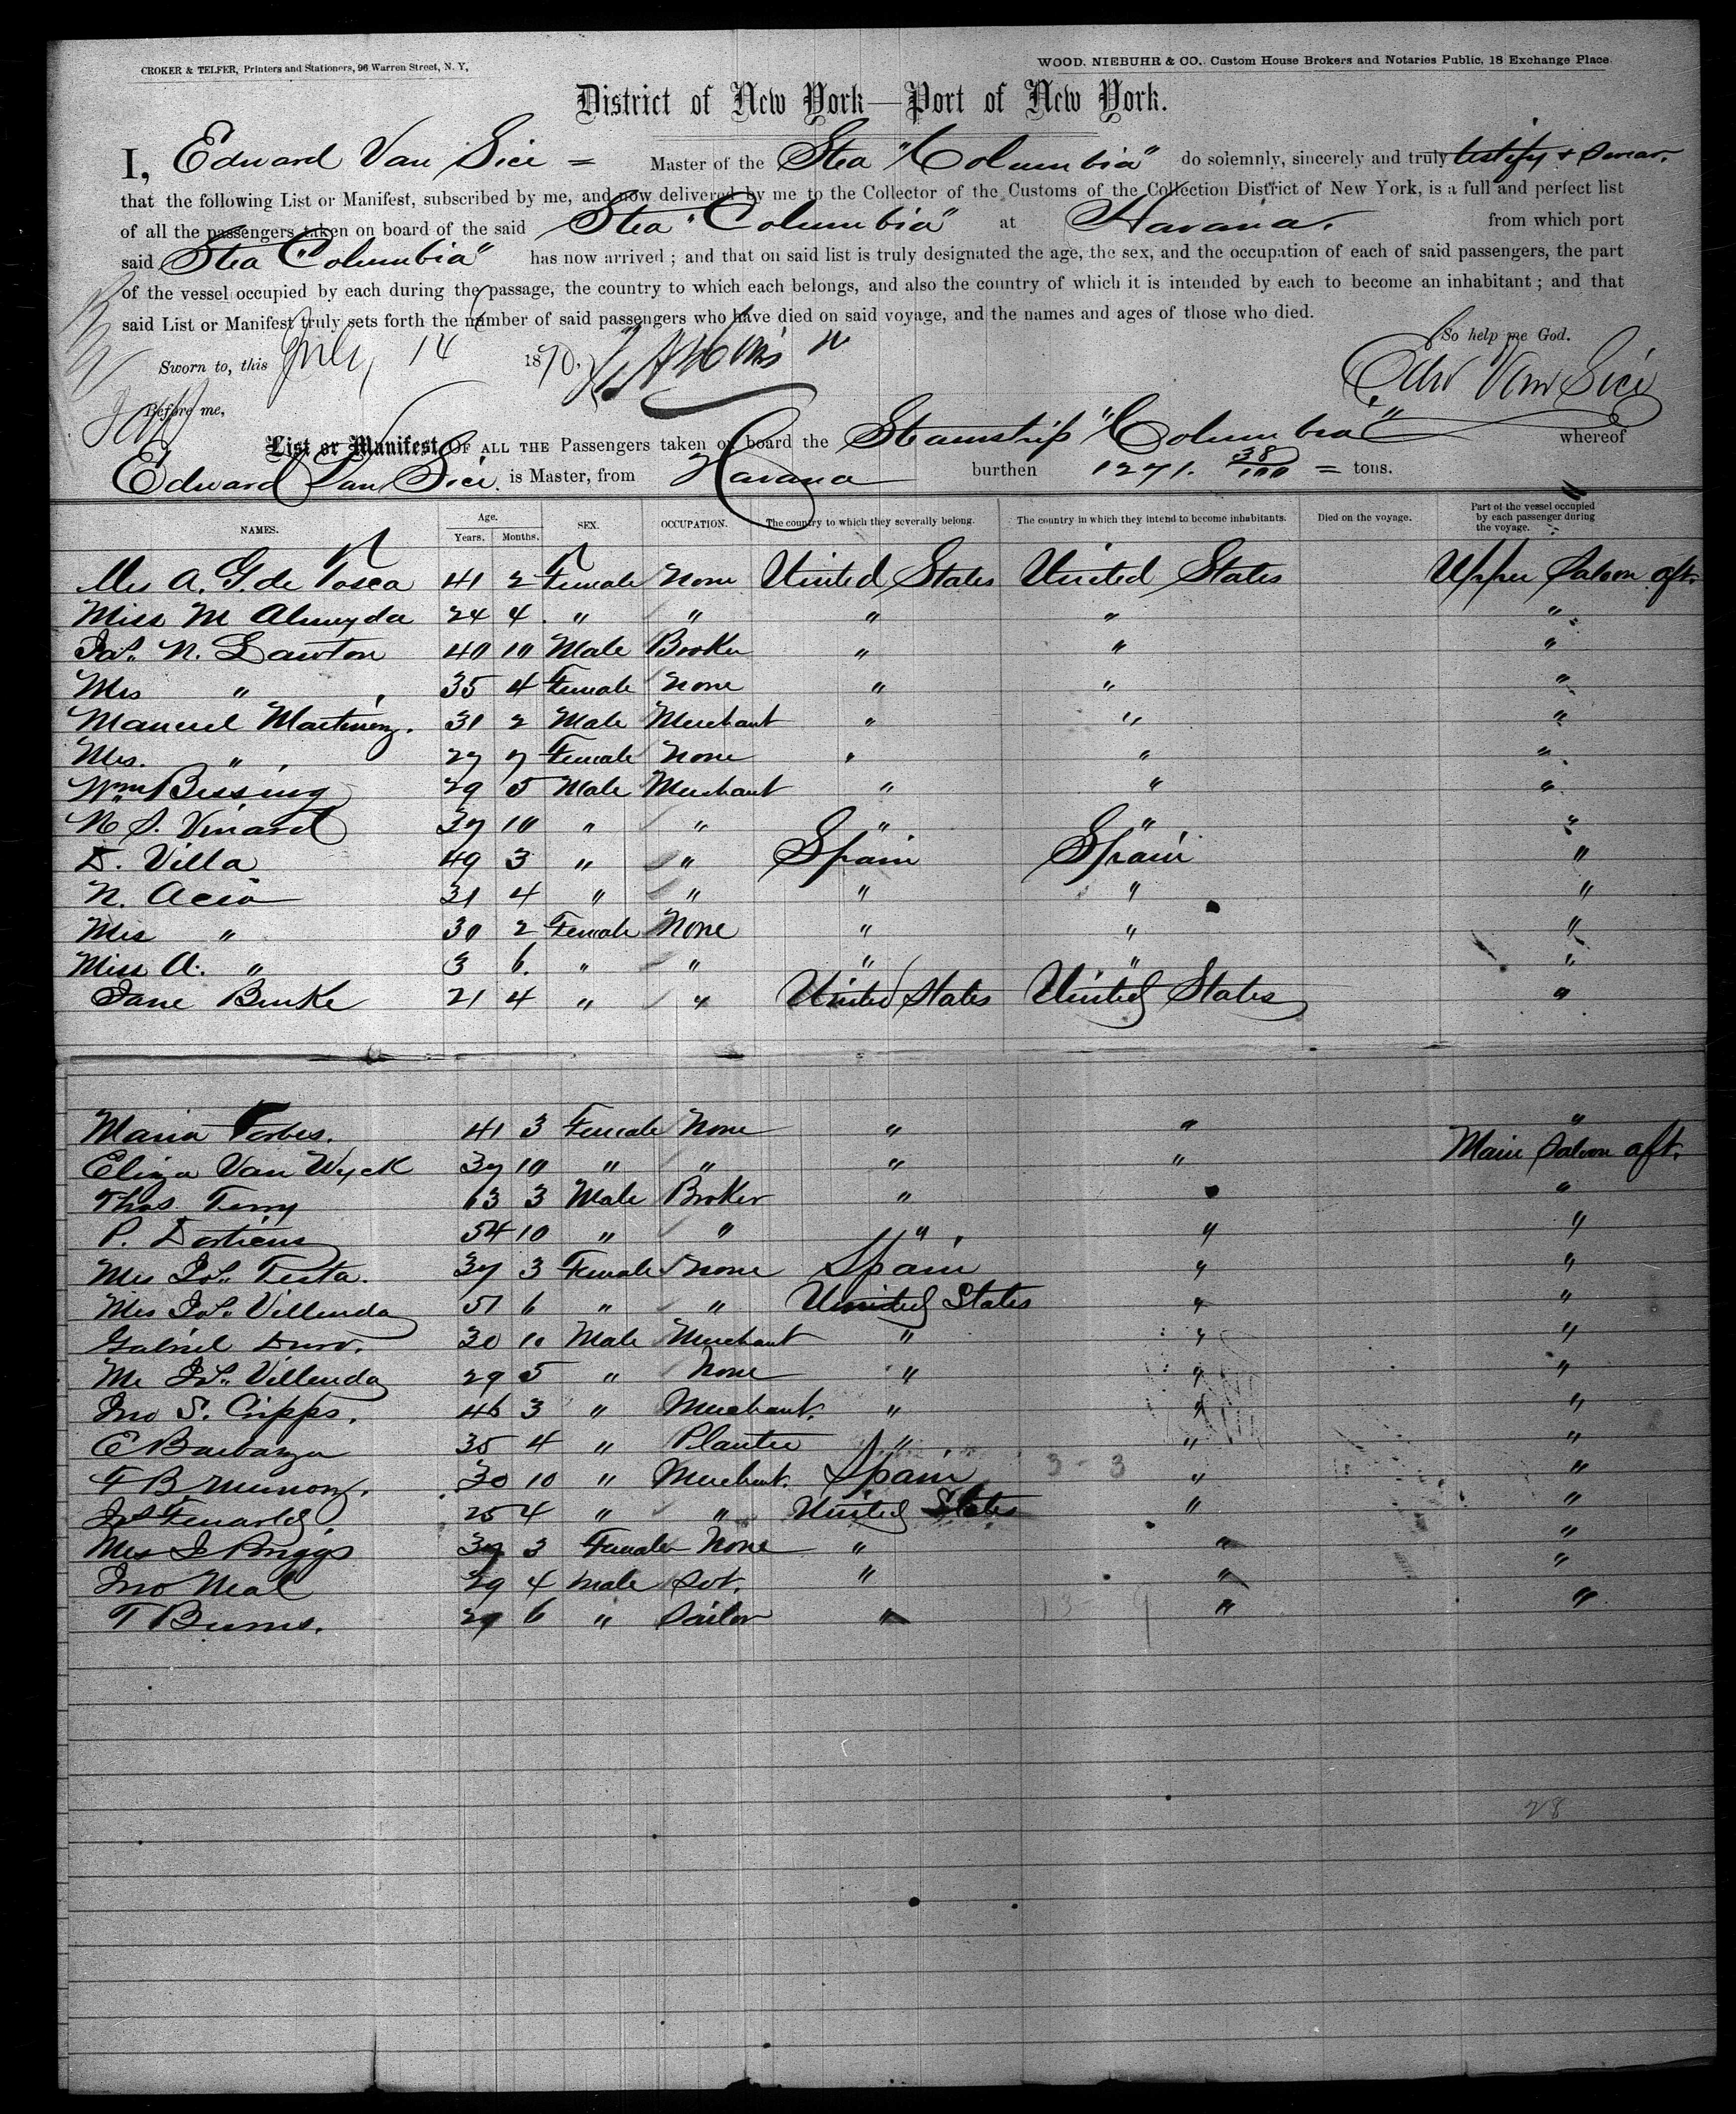 CROKER & TELFER, Printers and Stationers, 96 Warren Street, N. Y.
WOOD. NIEBUHR & CO. Custom House Brokers and Notaries Public, 18 Exchange Place
District of New York—Port of New York.
I, Edward Van Sice = Master of the Stea "Columbia" do solemnly, sincerely and truly testify & swear.
that the following List or Manifest, subscribed by me, and now delivered by me to the Collector of the Customs of the Collection District of New York, is a full and perfect list
of all the passengers taken on board of the said Stea "Columbia" at Havana. from which port
said Stea "Columbia" has now arrived ; and that on said list is truly designated the age, the sex, and the occupation of each of said passengers, the part
of the vessel occupied by each during the passage, the country to which each belongs, and also the country of which it is intended by each to become an inhabitant ; and that
said List or Manifest truly sets forth the number of said passengers who have died on said voyage, and the names and ages of those who died.
So help me God.
Sworn to, this July 14 1870. Edw Van Sice
Before me,
List or Manifest OF ALL THE Passengers taken on board the Steamship "Columbia" whereof
Edward Van Sice. is Master, from Havana burthen 1271. 38/100 = tons.
NAMES. Age. Years. Months. SEX. OCCUPATION. The country to which they severally belong. The country in which they intend to become inhabitants. Died on the voyage. Part of the vessel occupied by each passenger during the voyage.
Mrs A. G. de Tosca 41 2 Female None United States United States Upper Saloon aft.
Miss M Almeyda 24 4 " " " " "
Jas. N. Lawton 40 10 Male Broker " " "
Mrs " 35 4 Female None " " "
Manuel Martinez. 31 2 Male Merchant " " "
Mrs. " 27 7 Female None " " "
Wm Bissing 29 5 Male Merchant " " "
N S. Vinard 37 10 " " " " "
D. Villa 49 3 " " Spain Spain "
N. Acia 31 4 " " " " "
Mrs " 30 2 Female None " " "
Miss A. " 3 6. " " " " "
Jane Burke 21 4 " " United States United States "
Maria Forbes. 41 3 Female None " " "
Eliza Van Wyck 37 10 " " " " Main Saloon aft.
Thos Terry 63 3 Male Broker " " "
P. 54 10 " " " " "
Mrs Jos. Testa. 37 3 Female None Spain " "
Mrs Jos. Villenda 51 6 " " United States " "
Gabriel 30 10 Male Merchant " " "
Mr Jos. Villenda 29 5 " None " " "
Jno S. Cripps. 46 3 " Merchant. " " "
E Barbanza 35 4 " Planter " " "
F B. Munoz. 30 10 " Merchant. Spain " "
25 4 " " United States " "
Mrs J Briggs 37 3 Female None " " "
Jno Neal 29 4 Male " " "
T Burns. 27 6 " Sailor " " "
28